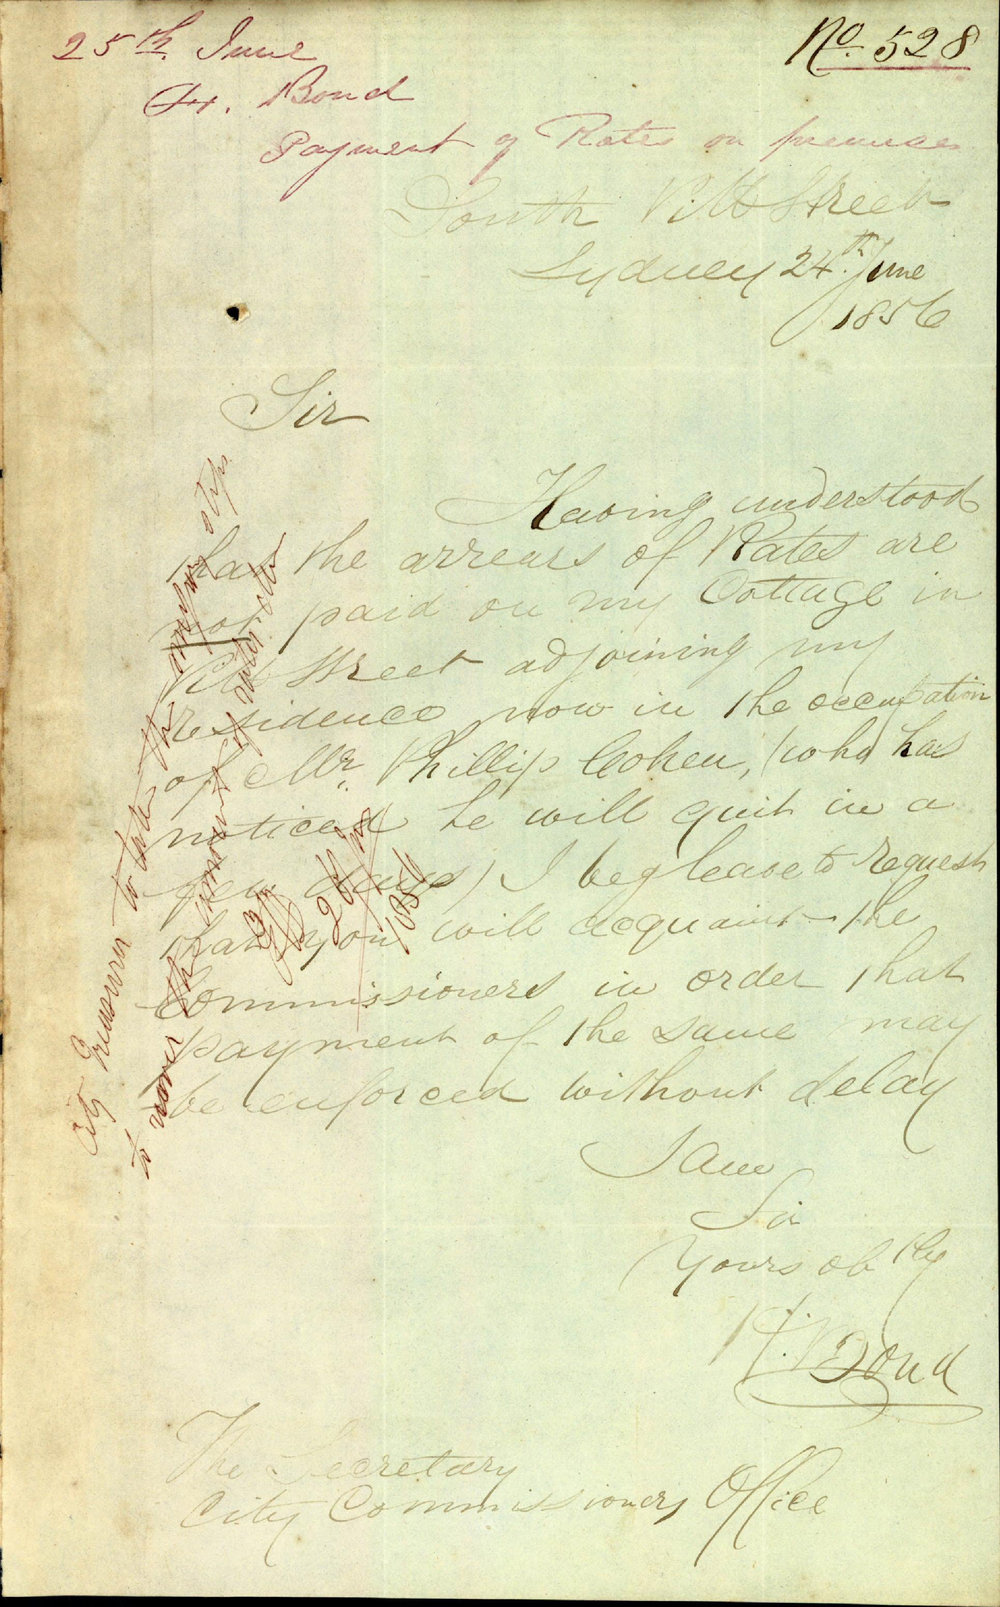 25th. June
No. 528
H. Bond
Payment of Rates on premises
South Pitt Street
Sydney 24th. June
1856
Sir
Having understood
that the arrears of Rates are
not paid on my Cottage in
Pitt Street adjoining my
residence now in the occupation
of Mr. Phillip Cohen, (who has
noticed he will quit in a
few days) I beg leave to request
that you will acquaint the
Commissioners in order that
payment of the same may
be enforced without delay
I am
Sir
Yours ob tly
H. Bond
The Secretary
City Commissioners Office
City Treasurer to take the compulsory steps
to recover the amount of rates
26
1856